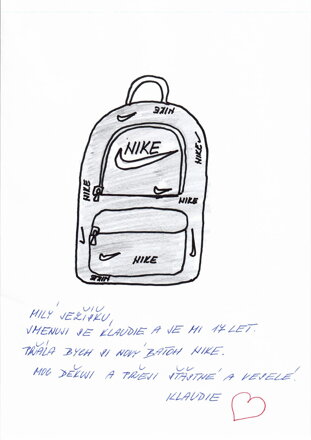 NIKE
NIKE
NIKE
NIKE
NIKE
NIKE
NIKE
MILÝ JEŽÍŠKU,
JMENUJI SE KLAUDIE A JE MI 17 LET.
PŘÁLA BYCH SI NOVÝ BATOH NIKE.
MOC DĚKUJI A PŘEJI ŠŤASTNÉ A VESELÉ.
KLAUDIE